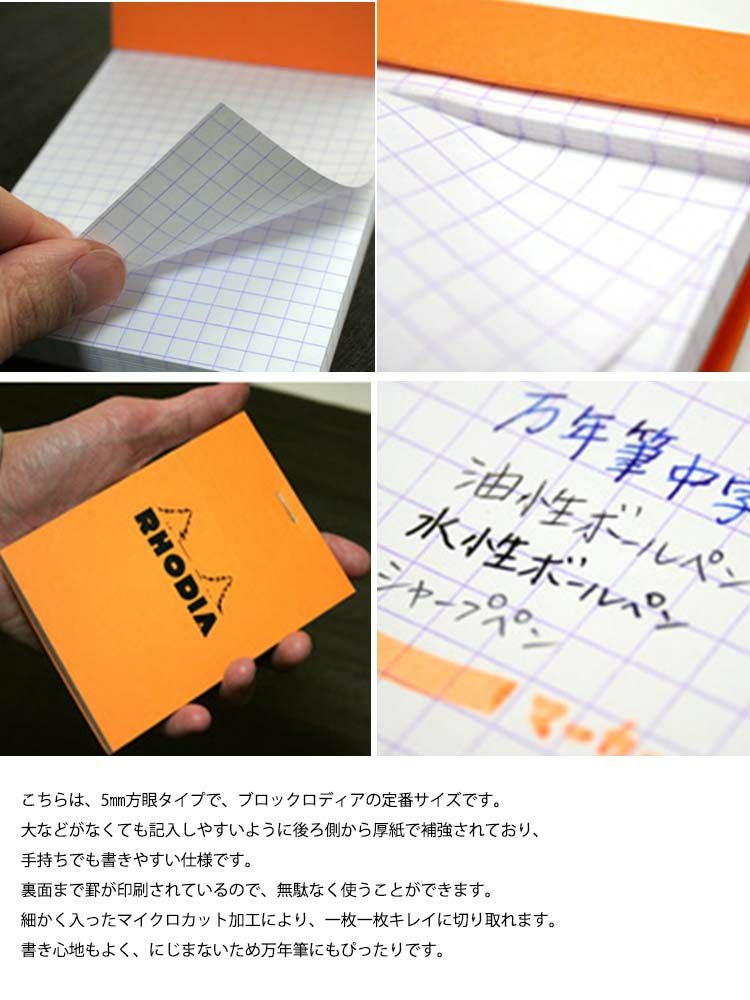 RHODIA
万年筆中字
油性ボールペン
水性ボールペン
シャープペン
マーカー
こちらは、5㎜方眼タイプで、ブロックロディアの定番サイズです。
大などがなくても記入しやすいように後ろ側から厚紙で補強されており、
手持ちでも書きやすい仕様です。
裏面まで罫が印刷されているので、無駄なく使うことができます。
細かく入ったマイクロカット加工により、一枚一枚キレイに切り取れます。
書き心地もよく、にじまないため万年筆にもぴったりです。